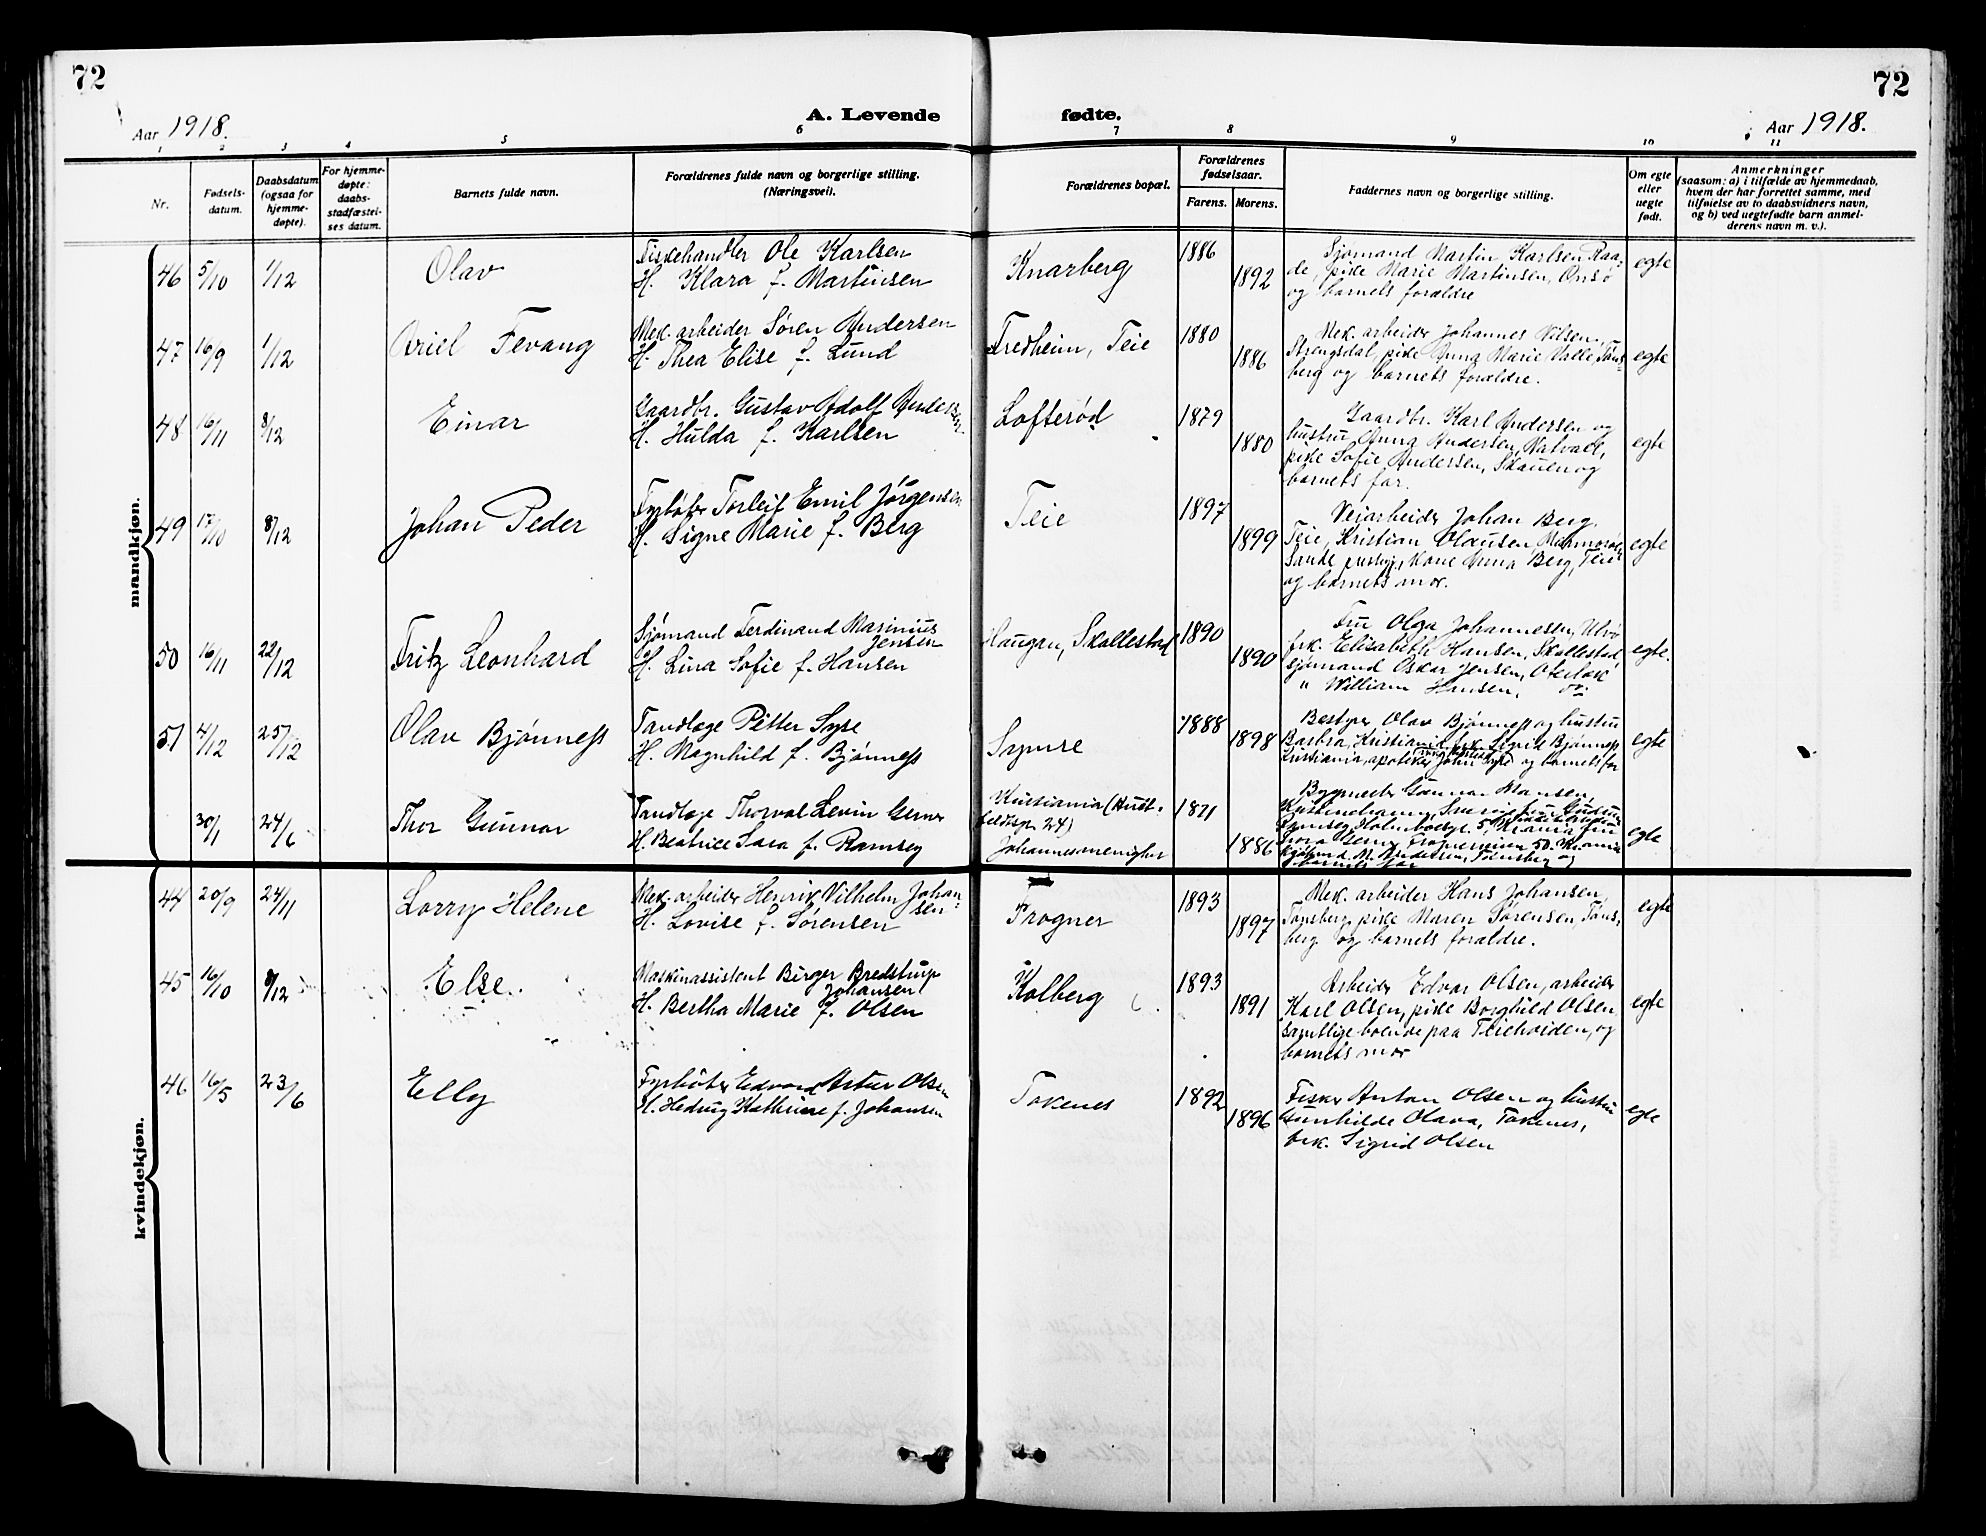 72
72
Aar 1918.
A. Levende
fødte.
Aar 1918.
1 2 3 4 5 6 7 8 9 10 11
Nr.
Fødsels-
datum.
Daabsdatum
(ogsaa for
hjemme-
døpte).
For hjemme-
døpte:
daabs-
stadfæstel-
ses datum.
Barnets fulde navn.
Forældrenes fulde navn og borgerlige stilling.
(Næringsvei).
Forældrenes bopæl.
Forældrenes
fødselsaar.
Farens. Morens.
Faddernes navn og borgerlige stilling.
Om egte
eller
uegte
født.
Anmerkninger
(saasom: a) i tilfælde av hjemmedaab,
hvem der har forrettet samme, med
tilføielse av to daabsvidners navn,
og b) ved uegtefødte barn anmel-
derens navn m. v.).
mandkjøn.
46 5/10 1/12 Olav
Fiskehandler Ole Karlsen
H. Klara f. Martinsen
Knarberg 1886 1892
Sjømand Martin Karlsen Raa-
de, pike Marie Martinsen, Onsø
og barnets forældre
egte
47 16/9 1/12 Ariel Fevang
Mek. arbeider Søren Andersen
H. Thea Elise f. Lund
Fredheim, Teie 1880 1886
Mek. arbeider Johannes Nilsen,
Strengsdal, pike Anna Marie Valle, Tøns-
berg og barnets forældre.
egte
48 16/11 8/12 Einar
Gaardbr. Gustav Adolf Andersen
H. Hulda f. Karlsen
Lofterød 1879 1880
Gaardbr. Karl Andersen og
hustru Anna Andersen, Natvall,
pike Sofie Andersen, Skauen og
barnets far.
egte
49 17/10 8/12 Johan Peder
Fyrbøter Torleif Emil Jørgensen
H. Signe Marie f. Berg
Teie 1897 1899
Veiarbeider Johan Berg
Teie, Kristian Olausen
Sande prestgj., kone Anna Berg, Teie
og barnets mor.
egte
50 16/11 22/12 Fritz Leonhard
Sjømand Ferdinand Marinius
Jensen
H. Lina Sofie f. Hansen
Haugan, Skallestad 1890 1890
Fru Olga Johannesen, Ulvø
frk. Elisabeth Hansen, Skallestad,
sjømand Oskar Jensen,
" William Hansen,
egte.
51 4/12 25/12 Olav Bjønness
Tandlæge Petter Syre
H. Magnhild f. Bjønness
1888 1898
Bestyrer Olav Bjønness og hustru
Barbra, Kristiania, frk. Sigrid Bjønness
Kristiania, apoteker John Syre og barnets far
egte
30/1 24/6 Thor Gunnar
Tandlæge Thorval Levin Gerner
H. Beatrice Sara f. Ramsey
Kristiania
24)
Johannesmenighet
1871 1886
Hansen,
Holmboesgt. 5, Kr.ania fru
50 Kr.ania
M. Andersen, Tønsberg og
barnets far
egte
kvindekjøn.
44 20/9 24/11 Lorry Helene
Mek. arbeider Henrik Vilhelm Johan-
sen
H. Lovise f. Sørensen
Frogner 1893 1897
Mek. arbeider Hans Johansen,
Tønsberg, pike Maren Sørensen, Tøns-
berg og barnets forældre.
egte
45 16/10 8/12 Else.
Maskinassistent Birger Bredstrup
Johansen
H. Bertha Marie f. Olsen
Kolberg 1893 1891
Arbeider Edvar Olsen, arbeider
Karl Olsen, pike Borghild Olsen,
samtlige boende paa Teieheiden, og
barnets mor
egte
46 16/5 23/6 Elly
Fyrbøter Edvard Artur Olsen
H. Hedvig Kathrine f. Johansen
Tokenes 1892 1896
Fisker Anton Olsen og hustru
Gunhilde Olava, Tokenes,
frk. Sigrid Olsen
egte